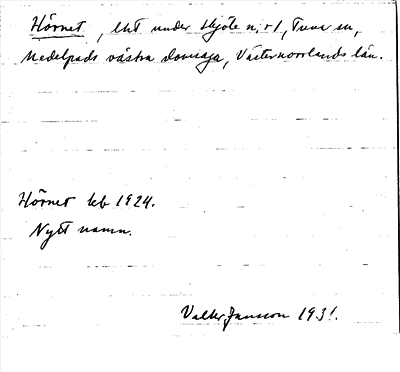 Hörnet, lht under Skjöle n:r 1, Tuna sn,
Medelpads västra domsaga, Västernorrlands län.
Hörnet leb 1924.
Nytt namn.
Valter Jansson 1931.